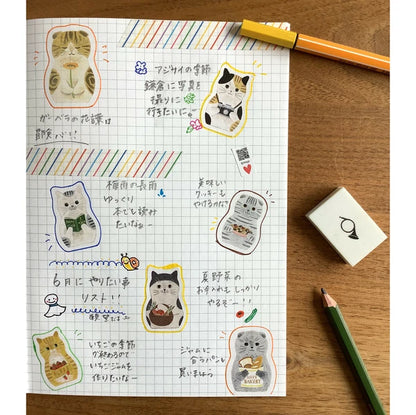 ガーベラの花言葉は
冒険心!!
アジサイの季節
鎌倉に写真を
撮りに
行きたいに
梅雨の長雨
ゆっくり
本でも読み
たいなぁー
美味しい
クッキーも
やけるかな?
6月にやりたい事
リスト!!
夏野菜の
お手入れもしっかり
やるぞー!!
いちごの季節
が終わるので
いちごジャムを
作りたいなー
ジャムに
合うパンも
買いましょう
BAKERY